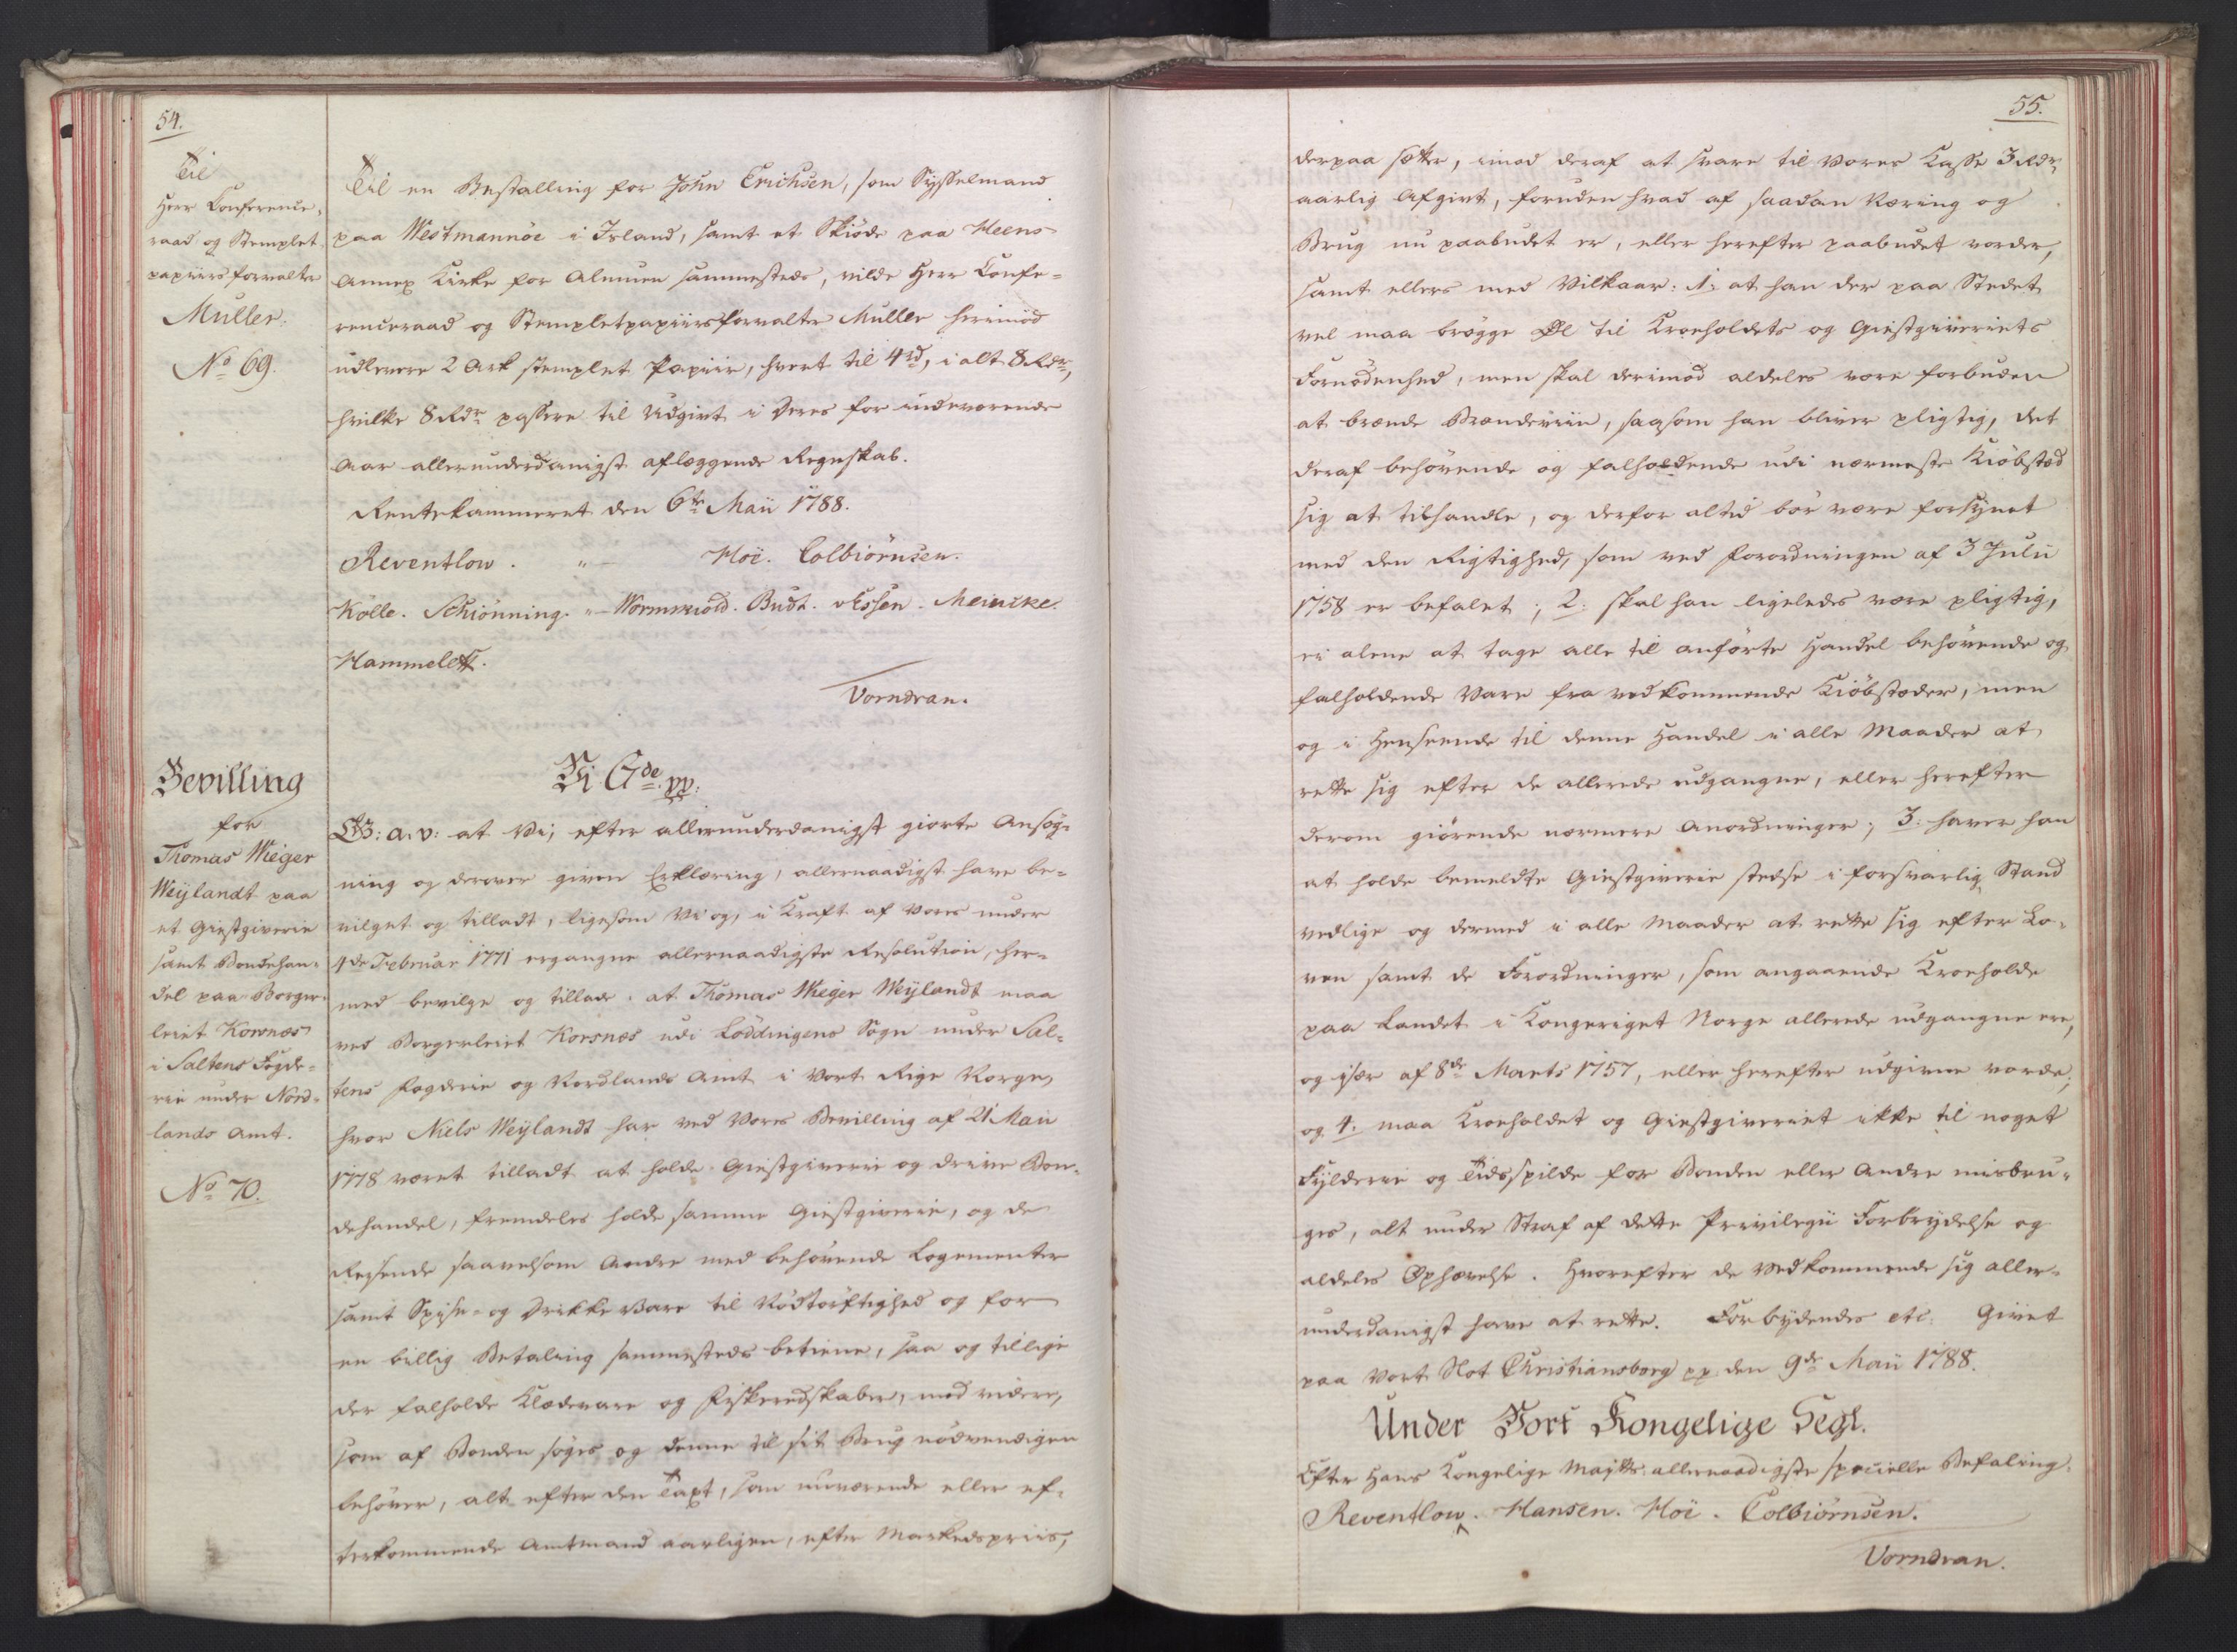 54.
Til
Herr Conference-
raad og Stemplet
papiirs forvalter
Muller.
No 69.
Til en Bestalling for John Erichsen, som Sysselmand
paa Westmannöe i Island, samt et Skiöde paa Meens
Annex Kirke for Almuen sammesteds, vilde Herr Confe-
renceraad og Stempletpapiirsforvalter Muller herimod
udlevere 2 Ark stemplet Papiir, hvert til 4 rd, i alt 8 Rdr,
hvilke 8 Rdr passere til Udgivt i Deres for indeværende
Aar allerunderdanigst aflæggende Regnskab.
Rentekammeret den 6te Maii 1788.
Reventlow. " Hoë. Colbiörnsen.
Kölle. Schiönning. " Wormskiold. Budtz. vEssen. Meincke.
Hammeleff.
Vorndran.
Bevilling
for
Thomas Wieger
Weÿlandt paa
et Giestgiverie
samt Bondehan-
del paa Borger-
leiet Korsnæs
i Saltens Fogde-
rie under Nord-
lands Amt.
No 70.
Vi C 7de pp:
G: A: V: at Vi, efter allerunderdanigst giorte Ansøg-
ning og derover given Erklæring, allernaadigst have be-
vilget og tilladt, ligesom Vi og, i Kraft af Vores under
4de Februar 1771 ergangne allernaadigste Resolution, her-
med bevilge og tillade: at Thomas Wieger Weÿlandt maa
ved Borgerleiet Korsnæs udi Löddingens Sogn under Sal-
tens Fogderie og Nordlands Amt i Vort Rige Norge,
hvor Niels Weÿlandt har ved Vores Bevilling af 21 Maii
1778 været tilladt at holde Giestgiverie og drive Bon-
dehandel, fremdeles holde samme Giestgiverie, og de
Reisende saavelsom Andre med behövende Logementer
samt Spise- og Drikke Vare til Nödtörftighed og for
en billig Betaling sammesteds betiene, saa og tillige
der falholde Klædevare og Fiskeredskaber, med videre,
som af Bonden söges og denne til sit Brug nödvendigen
behöver, alt efter den Taxt, som nuværende eller ef-
terkommende Amtmand aarligen, efter Markedspriis,
55.
derpaa sætter, imod deraf at svare til Vores Kasse 3 Rdr
aarlig Afgivt, foruden hvad af saadan Næring og
Brug nu paabudet er, eller herefter paabudet vorder,
samt ellers med Vilkaar: 1: at han der paa Stedet
vel maa brögge Øl til Kroeholdets og Giestgiveriets
Fornödenhed, men skal derimod aldeles være forbuden
at brænde Brændeviin, saasom han bliver pligtig, det
deraf behövende og falholdende udi nærmeste Kiöbstæd
sig at tilhandle, og derfor altid bör være forsynet
med den Rigtighed, som ved Forordningen af 3 Julii
1758 er befalet; 2: skal han ligeledes være pligtig,
ei alene at tage alle til anförte Handel behövende og
falholdende Vare fra vedkommende Kiöbstæder, men
og i Henseende til denne Handel i alle Maader at
rette sig efter de allerede udgangne, eller herefter
derom giörende nærmere Anordninger; 3: haver han
at holde bemeldte Giestgiverie stedse i forsvarlig Stand
vedlige og dermed i alle Maader at rette sig efter Lo-
ven samt de Forordninger, som angaaende Kroeholde
paa Landet i Kongeriget Norge allerede udgangne ere,
og især af 8de Marts 1757, eller herefter udgivne vorde;
og 4: maa Kroeholdet og Giestgiveriet ikke til noget
Fylderie og Tidsspilde for Bonden eller Andre misbru-
ges, alt under Straf af dette Privilegii Forbrydelse og
aldeles Ophævelse. Hvorefter de Vedkommende sig aller-
underdanigst have at rette. Forbydendes etc. Givet
paa Vort Slot Christiansborg pp den 9de Maii 1788.
Under Vort Kongelige Segl.
Efter Hans Kongelige Majtts allernaadigste specielle Befaling.
Reventlow. Hansen. Hoë. Colbiörnsen.
Vorndran.